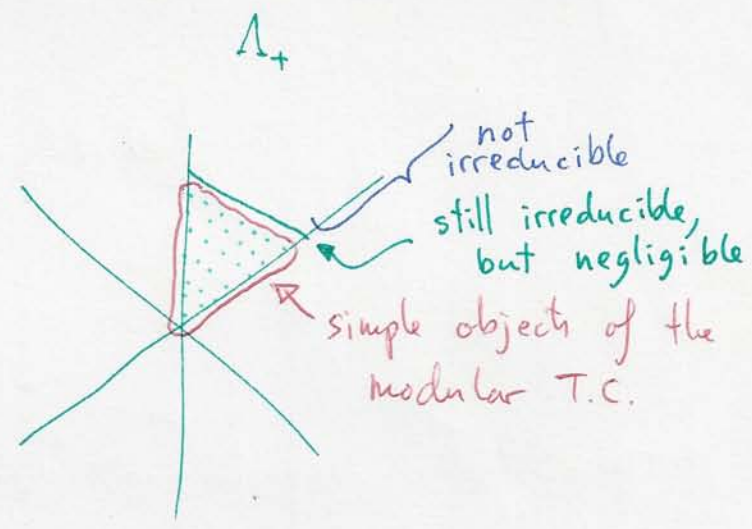 Λ₊
not
irreducible
still irreducible,
but negligible
simple objects of the
modular T.C.